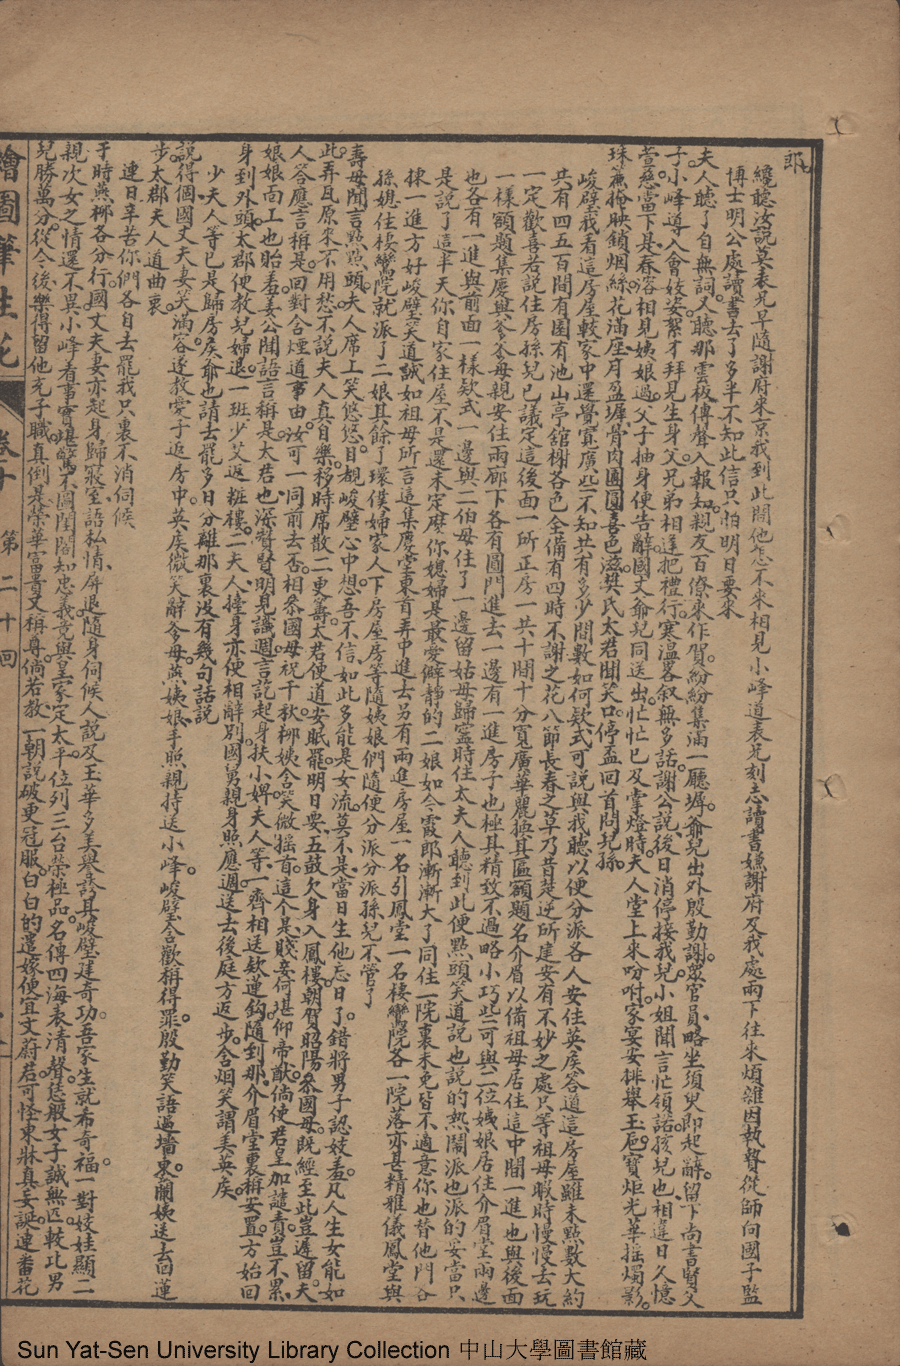 郎
纔聽汝說莫表兄早隨謝府來京我到此間他怎不來相見小峰道表兄刻志讀書嫌謝府及我處兩下往來煩雜因執贄從師向國子監
博士明公處讀書去了多半不知此信只怕明日要來
夫人聽了自無詞又聽那雲板傳聲入報知親友百僚來作賀紛紛集滿一廳墀爺兒出外殷勤謝眾官員略坐須臾即起辭留下尚書賢父
子小峰導入會姣姿絮才拜見生身父兄弟相逢把禮行寒溫畧叙無多話謝公說後日消停接我兒小姐聞言忙領諾孩兒也相違日久憶
萱慈當下是春溶相見姨娘過父子抽身便告辭國丈爺兒同送出忙忙已及掌燈時夫人堂上來吩咐家宴安排舉玉巵寶炬光華搖燭影
珠簾掩映鎖烟絲花滿座月盈墀骨肉團圓喜色滋樊氏太君聞笑口停盃回首問兒孫
峻壁我看這房屋較家中還覺寬廣些不知共有多少間數如何欵式可說與我聽以便分派各人安住英矦答道這房屋雖未點數大約
共有四五百間有園有池山亭舘榭各色全備有四時不謝之花八節長春之草乃昔楚逆所建安有不妙之處只等祖母暇時慢慢去玩
一定歡喜若說住房孫兒已議定這後面一所正房一共十間十分寬廣華麗換其區額題名介眉以備祖母居住這中間一進也與後面
一樣額題集慶與爹爹母親安住兩廊下各有圓門進去一邊有一進房子也極其精致不過略小巧些可與二位姨娘居住介眉堂兩邊
也各有一進與前面一樣欵式一邊與二伯母住了一邊留姑母歸寧時住太夫人聽到此便點頭笑道說也說的熱鬧派也派的妥當只
是說了這半天你自家住屋不是還未定麼你媳婦是最愛僻靜的二娘如今霞郎漸漸大了同住一院裏未免皆不適意你也替他們各
揀一進方好峻壁笑道誠如祖母所言這集慶堂東首弄中進去另有兩進房屋一名引鳳堂一名棲鸞院各一院落亦甚精雅儀鳳堂與
孫媳住棲鸞院就派了二娘其餘了環僕婦家人下房屋房等隨姨娘們隨便分派分派孫兒不管了
壽母聞言點點頭夫人席上笑悠悠目覩峻壁心中想吾不信如此多能是女流莫不是當日生他忘日了錯將男子認妓羞凡人生女能如
此弄瓦原來不用愁不說夫人真自樂移時席散二更籌太君便道安眠罷明日要五鼓欠身入鳳樓朝賀昭陽叅國母既經至此豈遲留夫
人答應言稱是回對合煙道事由汝可一同前去否相叅國母祝千秋柳姨含笑微搖首這個是賤妾何堪仰帝猷倘使君皇加譴責豈不累
娘娘面上也貽羞姜公聞語言稱是太君也深贊賢明見識週言訖起身扶小婢夫人等一齊相送欸連鈎隨到那介眉堂裏稱安置方始回
身到外頭太郡便教兒婦退一班少艾返粧樓二夫人擡身亦便相辭別國舅親身照應週送去後庭方返步含烟笑謂美英矦
少夫人等已是歸房矦爺也請去罷多日分離那裏沒有幾句話說
說得個國丈夫妻笑滿容遂教愛子返房中英矦微笑辭爹母燕姨娘手照親持送小峰峻壁含歡稱得罪殷勤笑語過墻東蘭姨送去回蓮
步太郡夫人道曲衷
連日辛苦你們各自去罷我只裏不消伺候
于時燕柳各分行國丈夫妻亦起身歸寢室語私情屏退隨身伺候人說及玉華多美譽誇其峻壁建奇功吾家生就希奇福一對姣娃顯二
親次女之情還不異小峰看事實堪驚不圖閨閣知忠義竟與皇家定太平位列三台榮極品名傳四海表清聲恁般女子誠無匹較比男
兒勝萬分從今後樂得留他充子職真倒是榮華富貴又稱尊倘若教一朝說破更冠服白白的遣嫁便宜文蔚君可怪東牀真妄誕連番花
繪圖筆生花 卷十 第二十回
Sun Yat-Sen University Library Collection 中山大學圖書館藏